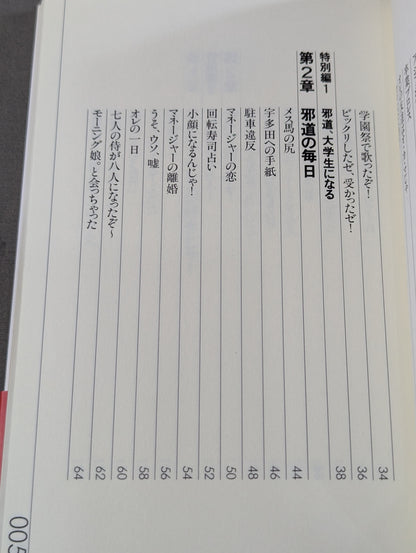 34
学園祭で歌ったぞ! 36
ビックリしたぜ、受かったぜ! 38
特別編1 邪道、大学生になる
第2章 邪道の毎日
メス馬の尻 44
宇多田への手紙 46
駐車違反 48
マネージャーの恋 50
回転寿司占い 52
小顔になるんじゃ! 54
マネージャーの離婚 56
うそ、ウソ、嘘 58
オレの一日 60
七人の侍が八人になったぞ〜 62
モーニング娘。と会っちゃった 64
005